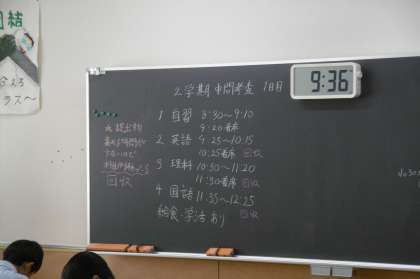 団結
2学期 中間考査 1日目
9:36
1 自習 8:30〜9:10
9:20着席
2 英語 9:25〜10:15
10:25着席 回収
3 理科 10:30〜11:20
11:30着席 回収
4 国語 11:35〜12:25
給食・学活あり 回収
回収